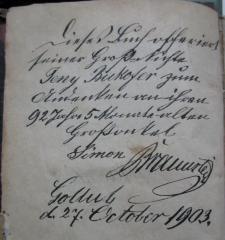 Dieses Buch offeriert
seiner Großnichte
Tony Bukofzer zum
Andenken an ihren
92 Jahr 5 Monate alten
Großonkel
Simon
Gollub
d. 27. October 1903.